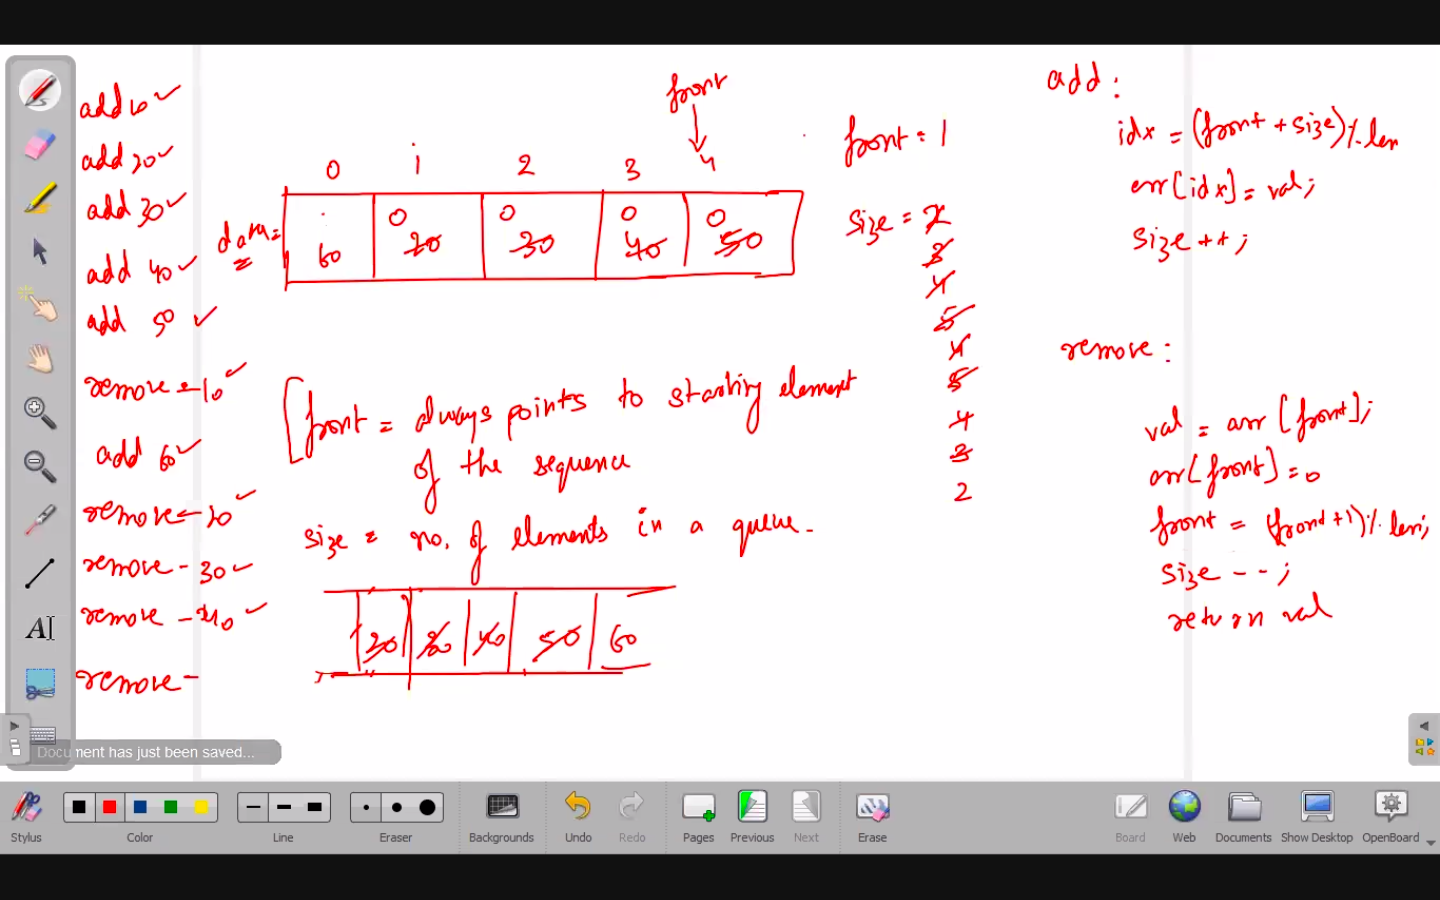 add 10 ✓
add 20 ✓
add 30 ✓
add 40 ✓
add 50 ✓
remove - 10 ✓
add 60 ✓
remove - 20 ✓
remove - 30 ✓
remove - 40 ✓
remove -
front
0 1 2 3 4
data =
60
0 0 0 0
20 30 40 50
front = 1
size = 2
3
4
5
4
5
4
3
2
front = always points to starting element
of the sequence
size = no. of elements in a queue.
20 30 40 50 60
add :
idx = (front + size) % len
arr[idx] = val;
size ++;
remove :
val = arr [front];
arr[front] = 0
front = (front + 1) % len;
size --;
return val
Document has just been saved...
Stylus Color Line Eraser Backgrounds Undo Redo Pages Previous Next Erase Board Web Documents Show Desktop OpenBoard